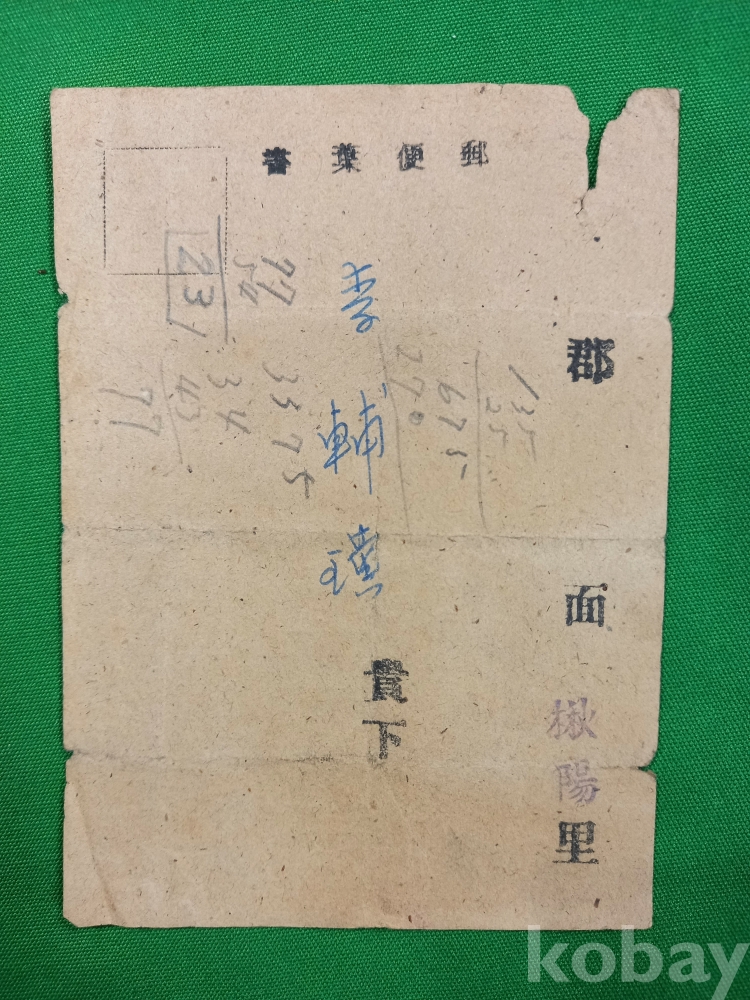 郵便葉書
郡 面 楸陽里
李輔 貴下
135
25
675
270
3375
77
54
23
34
43
77
kobay